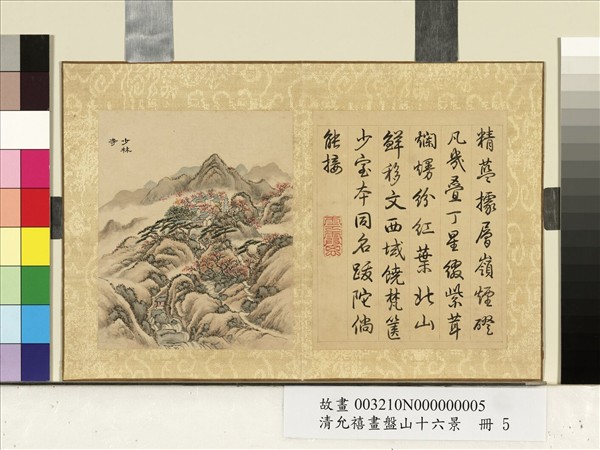 精藍據層嶺煙磴
凡幾疊丁星綴紫茸
爛熳紛紅葉北山
鮮移文西域饒梵篋
少室本同名跋陀倘
能接
少林
寺
故畫 003210N000000005
清允禧畫盤山十六景 冊 5